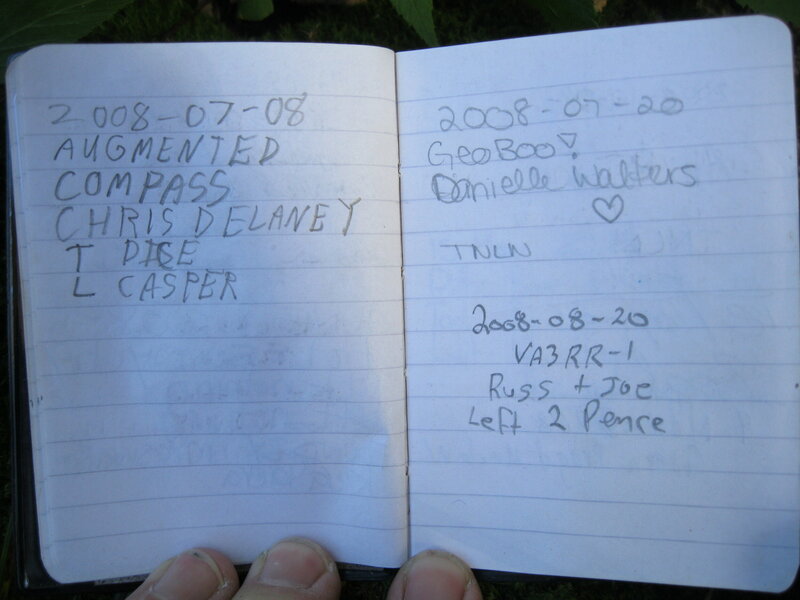 2008-07-08
AUGMENTED
COMPASS
CHRIS DELANEY
T DICE
L CASPER
2008-07-20
GeoBoo!
Danielle Walters
♡
TNLN
2008-08-20
VA3RR-1
Russ + Joe
Left 2 Pence